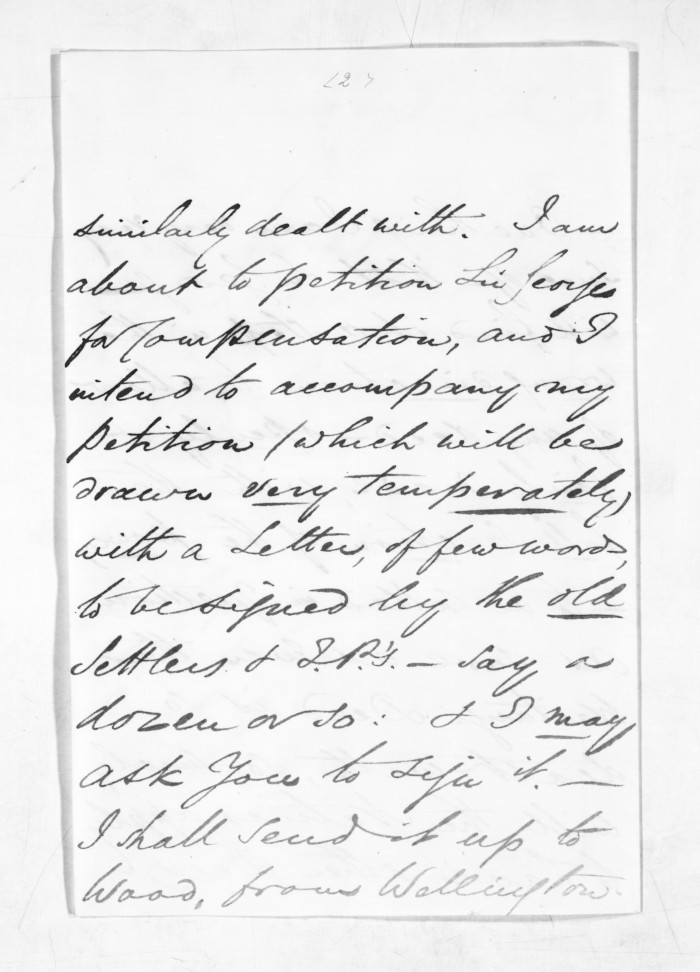 (2)
similarly dealt with. I am
about to petition Sir George
for Compensation, and I
intend to accompany my
Petition (which will be
drawn very temperately)
with a Letter, of few words,
to be signed by the old
Settlers & J.P's. — say a
dozen or so: & I may
ask You to sign it. —
I shall send it up to
Wood, from Wellington.